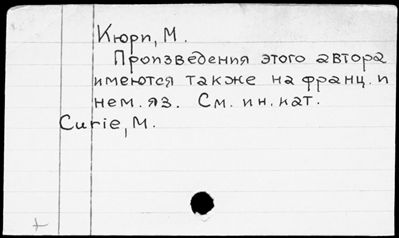 Кюри, М.
Произведения этого автора
имеются также на франц. и
нем. яз. См. ин. кат.
Curie, М.